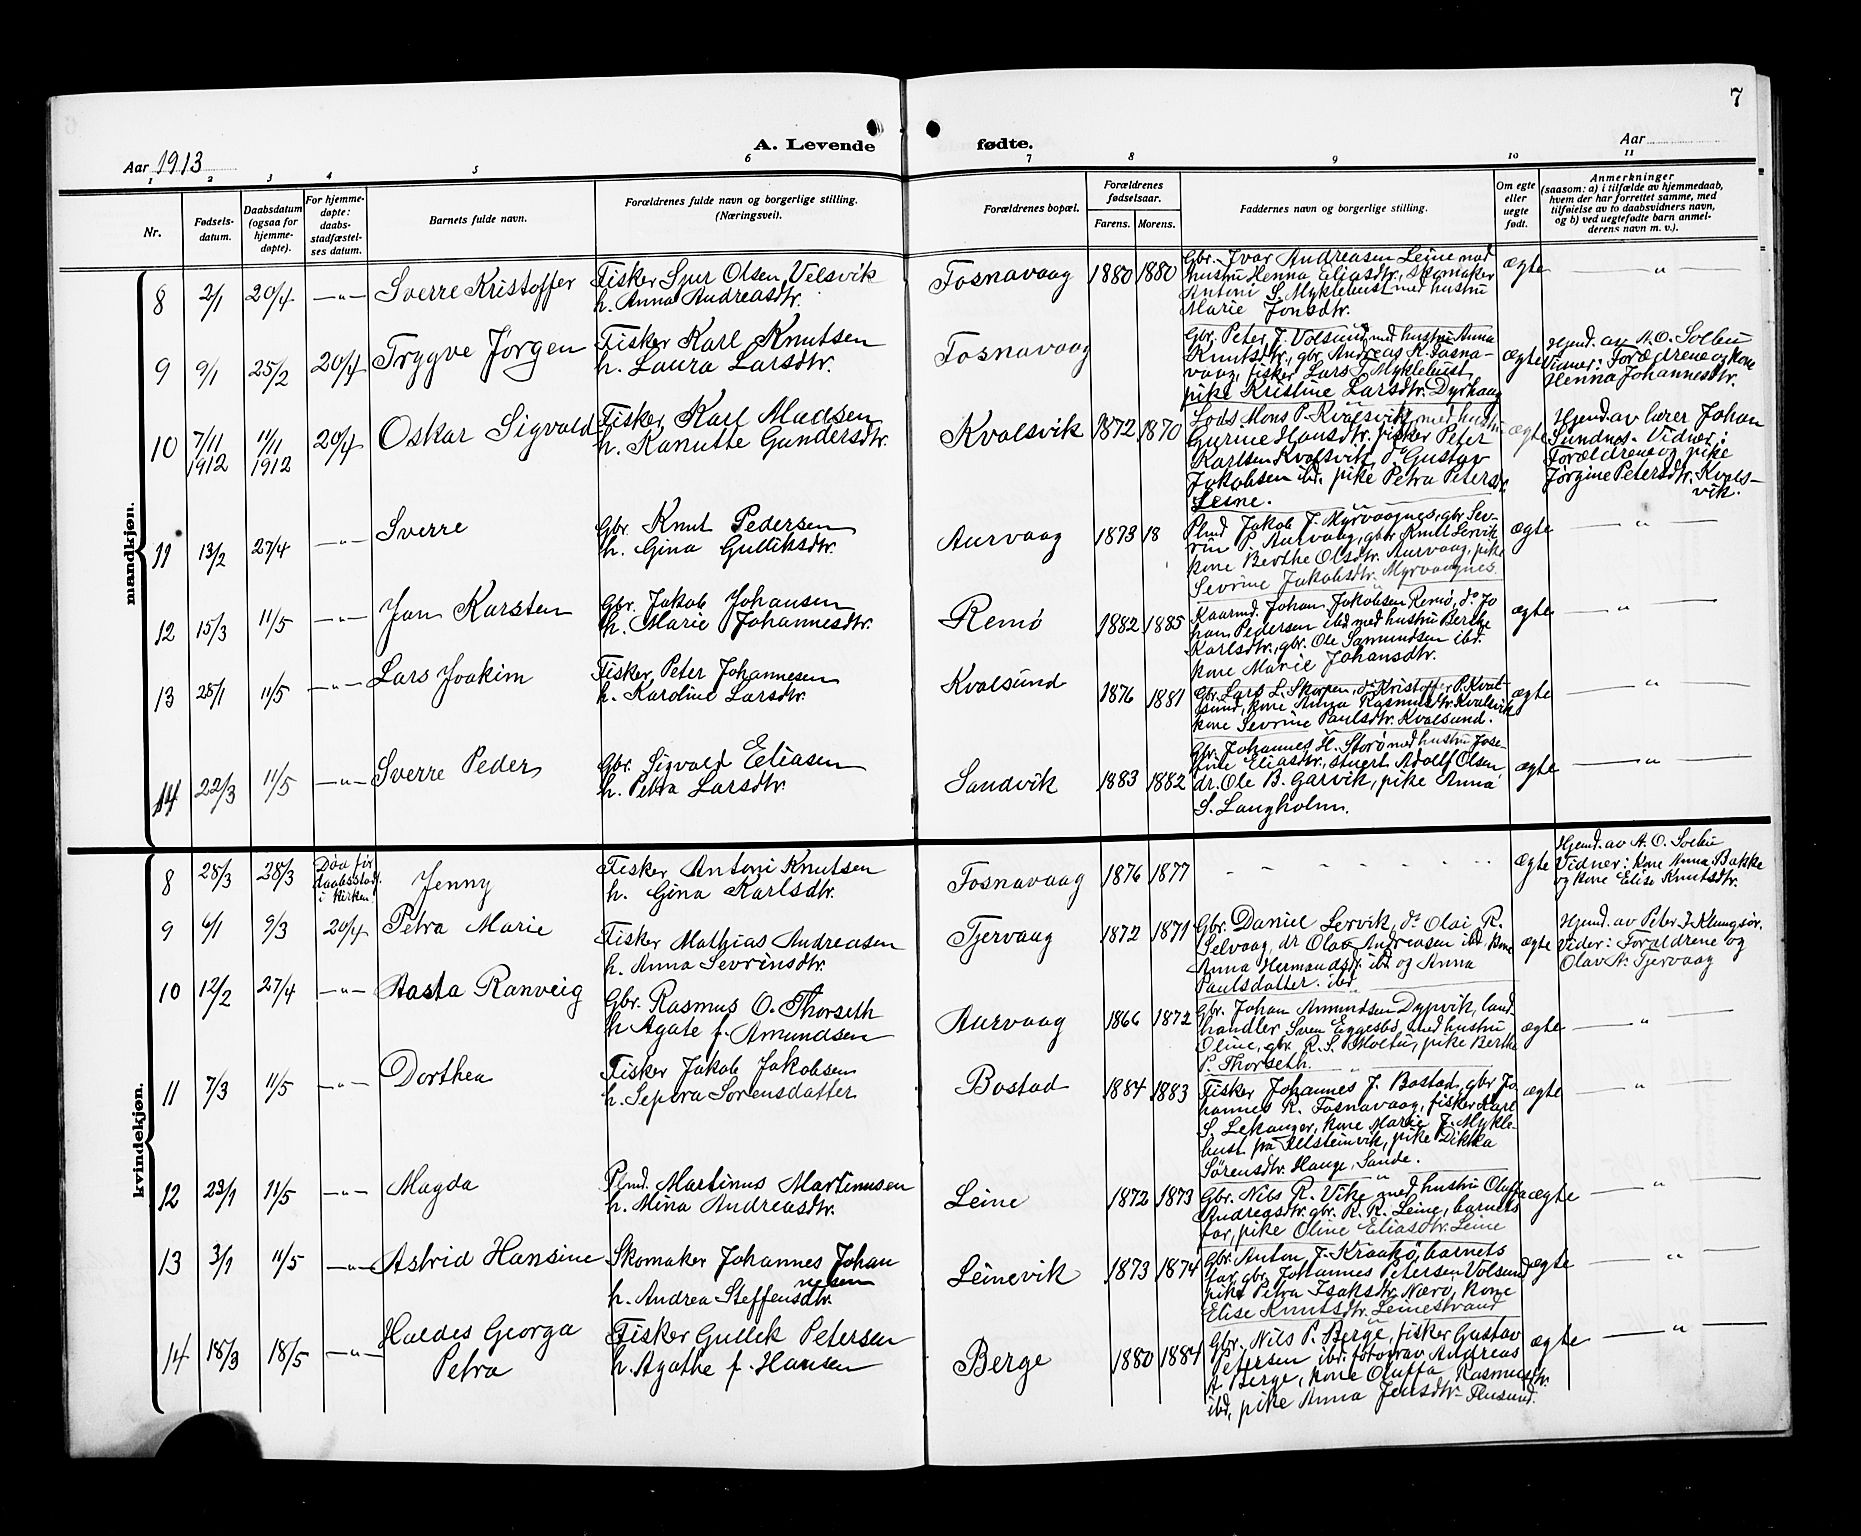 7
A. Levende fødte.
Aar 1913
Aar
1 2 3 4 5 6 7 8 9 10 11
Nr.
Fødsels-
datum.
Daabsdatum
(ogsaa for
hjemme-
døpte).
For hjemme-
døpte:
daabs-
stadfæstel-
ses datum.
Barnets fulde navn.
Forældrenes fulde navn og borgerlige stilling.
(Næringsvei).
Forældrenes bopæl.
Forældrenes
fødselsaar.
Farens. Morens.
Faddernes navn og borgerlige stilling.
Om egte
eller
uegte
født.
Anmerkninger
(saasom: a) i tilfælde av hjemmedaab,
hvem der har forrettet samme, med
tilføielse av to daabsvidners navn,
og b) ved uegtefødte barn anmel-
derens navn m. v.).
mandkjøn.
8 2/1 20/4 —"— Sverre Kristoffer
Fisker Sjur Olsen Velsvik
h. Anna Andreasdtr.
Fosnavaag 1880 1880
Gbr. Ivar Andreasen Leine med
hustru Henna Eliasdtr, skomaker
Antoni S. Myklebust med hustru
Marie Jonsdtr.
ægte —"—
9 9/1 25/2 20/4 Trygve Jørgen
Fisker Karl Knutsen
h. Laura Larsdtr.
Fosnavaag
Gbr. Peter J. Volsund med hustru Anna
Knutsdtr., gbr. Andreas K. Fosna-
vaag, fisker Lars J. Myklebust,
pike Kristine Larsdtr. Dyrhaug
ægte
Hjmd. av A. O. Solbu
Vidner: Forældrene og kone
Henna Johannesdtr.
10 7/11 1912 11/11 1912 20/4 Oskar Sigvald
Fisker Karl Madsen
h. Kanutte Gundersdtr.
Kvalsvik 1872 1870
Lods Mons P. Kvalsvik med hustru
Gurine Hansdtr. fisker Peter
Karlsen Kvalsvik, do Gustav
Jakobsen ibd. pike Petra Petersdtr
Leine.
ægte
Hjemd. av lærer Johan
Sundnes. Vidner:
Forældrene og pike
Jørgine Petersdtr. Kvals-
vik.
11 13/2 27/4 —"— Sverre
Gbr. Knut Pedersen
h. Gina Gulliksdtr.
Aurvaag 1873 18
Plmd Jakob J. Myrvaagnes, gbr Sev-
rin P. Aurvaag, gbr Knut Lervik
kone Berthe Olsdtr. Aurvaag, pike
Sevrine Jakobsdtr. Myrvaagnes.
ægte —"—
12 15/3 11/5 —"— Jan Karsten
Gbr. Jakob Johansen
h. Marie Johannesdtr.
Remø 1882 1885
Kaarmd. Johan Jakobsen Remø, do Jo
han Pedersen ibd med hustru Berthe
Karlsdtr., gbr. Ole Samundsen ibd.
kone Marie Johansdtr.
ægte —"—
13 25/1 11/5 —"— Lars Joakim
Fisker Peter Johannesen
h. Karoline Larsdtr.
Kvalsund 1876 1881
Gbr. Lars L. Skorpen, do Kristoffer P. Kval-
sund, kone Anna Rasmusdtr. Kvalsvik
kone Sevrine Paulsdtr. Kvalsund.
ægte —"—
14 22/3 11/5 —"— Sverre Peder
Gbr. Sigvald Eliasen
h. Petra Larsdtr.
Sandvik 1883 1882
Gbr. Johannes H. Storø med hustru Jose-
fine Eliasdtr., stuert Adolf Olsen,
dr. Ole B. Garvik, pike Anna
S. Langholm.
ægte —"—
kvindekjøn.
8 28/3 28/3 Død før
daabsstadf.
i kirken!
Jenny
Fisker Antoni Knutsen
h. Gina Karlsdtr.
Fosnavaag 1876 1877
- - - - - - - -
ægte
Hjemd. av A. O. Solbu
Vidner: kone Anna Bakke
og kone Elise Knutsdtr.
9 6/1 9/3 20/4 Petra Marie
Fisker Mathias Andreasen
h. Anna Sevrinsdtr.
Tjervaag 1872 1871
Gbr. Daniel Lervik, do Olai R.
Selvaag, dr Olav Andreasen ibd. kone
Anna Hermandsdtr. ibd og Anna
Paulsdatter. ibd
ægte
Hjemd. av Peter J. Klungsør.
Vidner: Forældrene og
Olav A. Tjervaag
10 12/2 27/4 —"— Aasta Ranveig
Gbr. Rasmus O. Thorseth
h Agate f. Amundsen
Aurvaag 1866 1872
Gbr. Johan Amundsen Dypvik, land-
handler Sven Eggesbø med hustru
Oline, gbr. R. S. Moltu, pike Berthe
P. Thorseth.
ægte —"—
11 7/3 11/5 —"— Dorthea
Fisker Jakob Jakobsen
h. Sepora Sørensdatter
Bostad 1884 1883
Fisker Johannes J. Bostad, gbr Jo-
hannes R. Fosnavaag, fisker Karl
S. Lekanger, kone Marie J. Mykle-
bust. fra Ulsteinvik, pike Dikka
Sørensdtr. Hauge, Sande.
ægte —"—
12 23/1 11/5 —"— Magda
Plmd. Martinus Martinusen
h. Mina Andreasdtr.
Leine 1872 1873
Gbr. Nils R. Vike med hustru Oluffa
Andreasdtr. gbr. R. R. Leine, barnets
far, pike Oline Eliasdtr. Leine
ægte —"—
13 3/1 11/5 —"— Astrid Hansine
Skomaker Johannes Johan
nesen
h. Andrea Steffensdtr.
Leinevik 1873 1874
Gbr. Anton J. Kraakø, barnets
far, gbr. Johannes Petersen Volsund
pike Petra Isaksdtr. Nærø, kone
Elise Knutsdtr. Leinestrand
ægte —"—
14 18/3 18/5 —"— Haldis Georga
Petra
Fisker Gullik Petersen
h. Agathe f. Hansen
Berge 1880 1884
Gbr. Nils P. Berge, fisker Gustav
Petersen ibd. fotograv Andreas
A Berge, kone Oluffa Rasmusdtr.
ibd, pike Anna Jensdtr.
ægte —"—